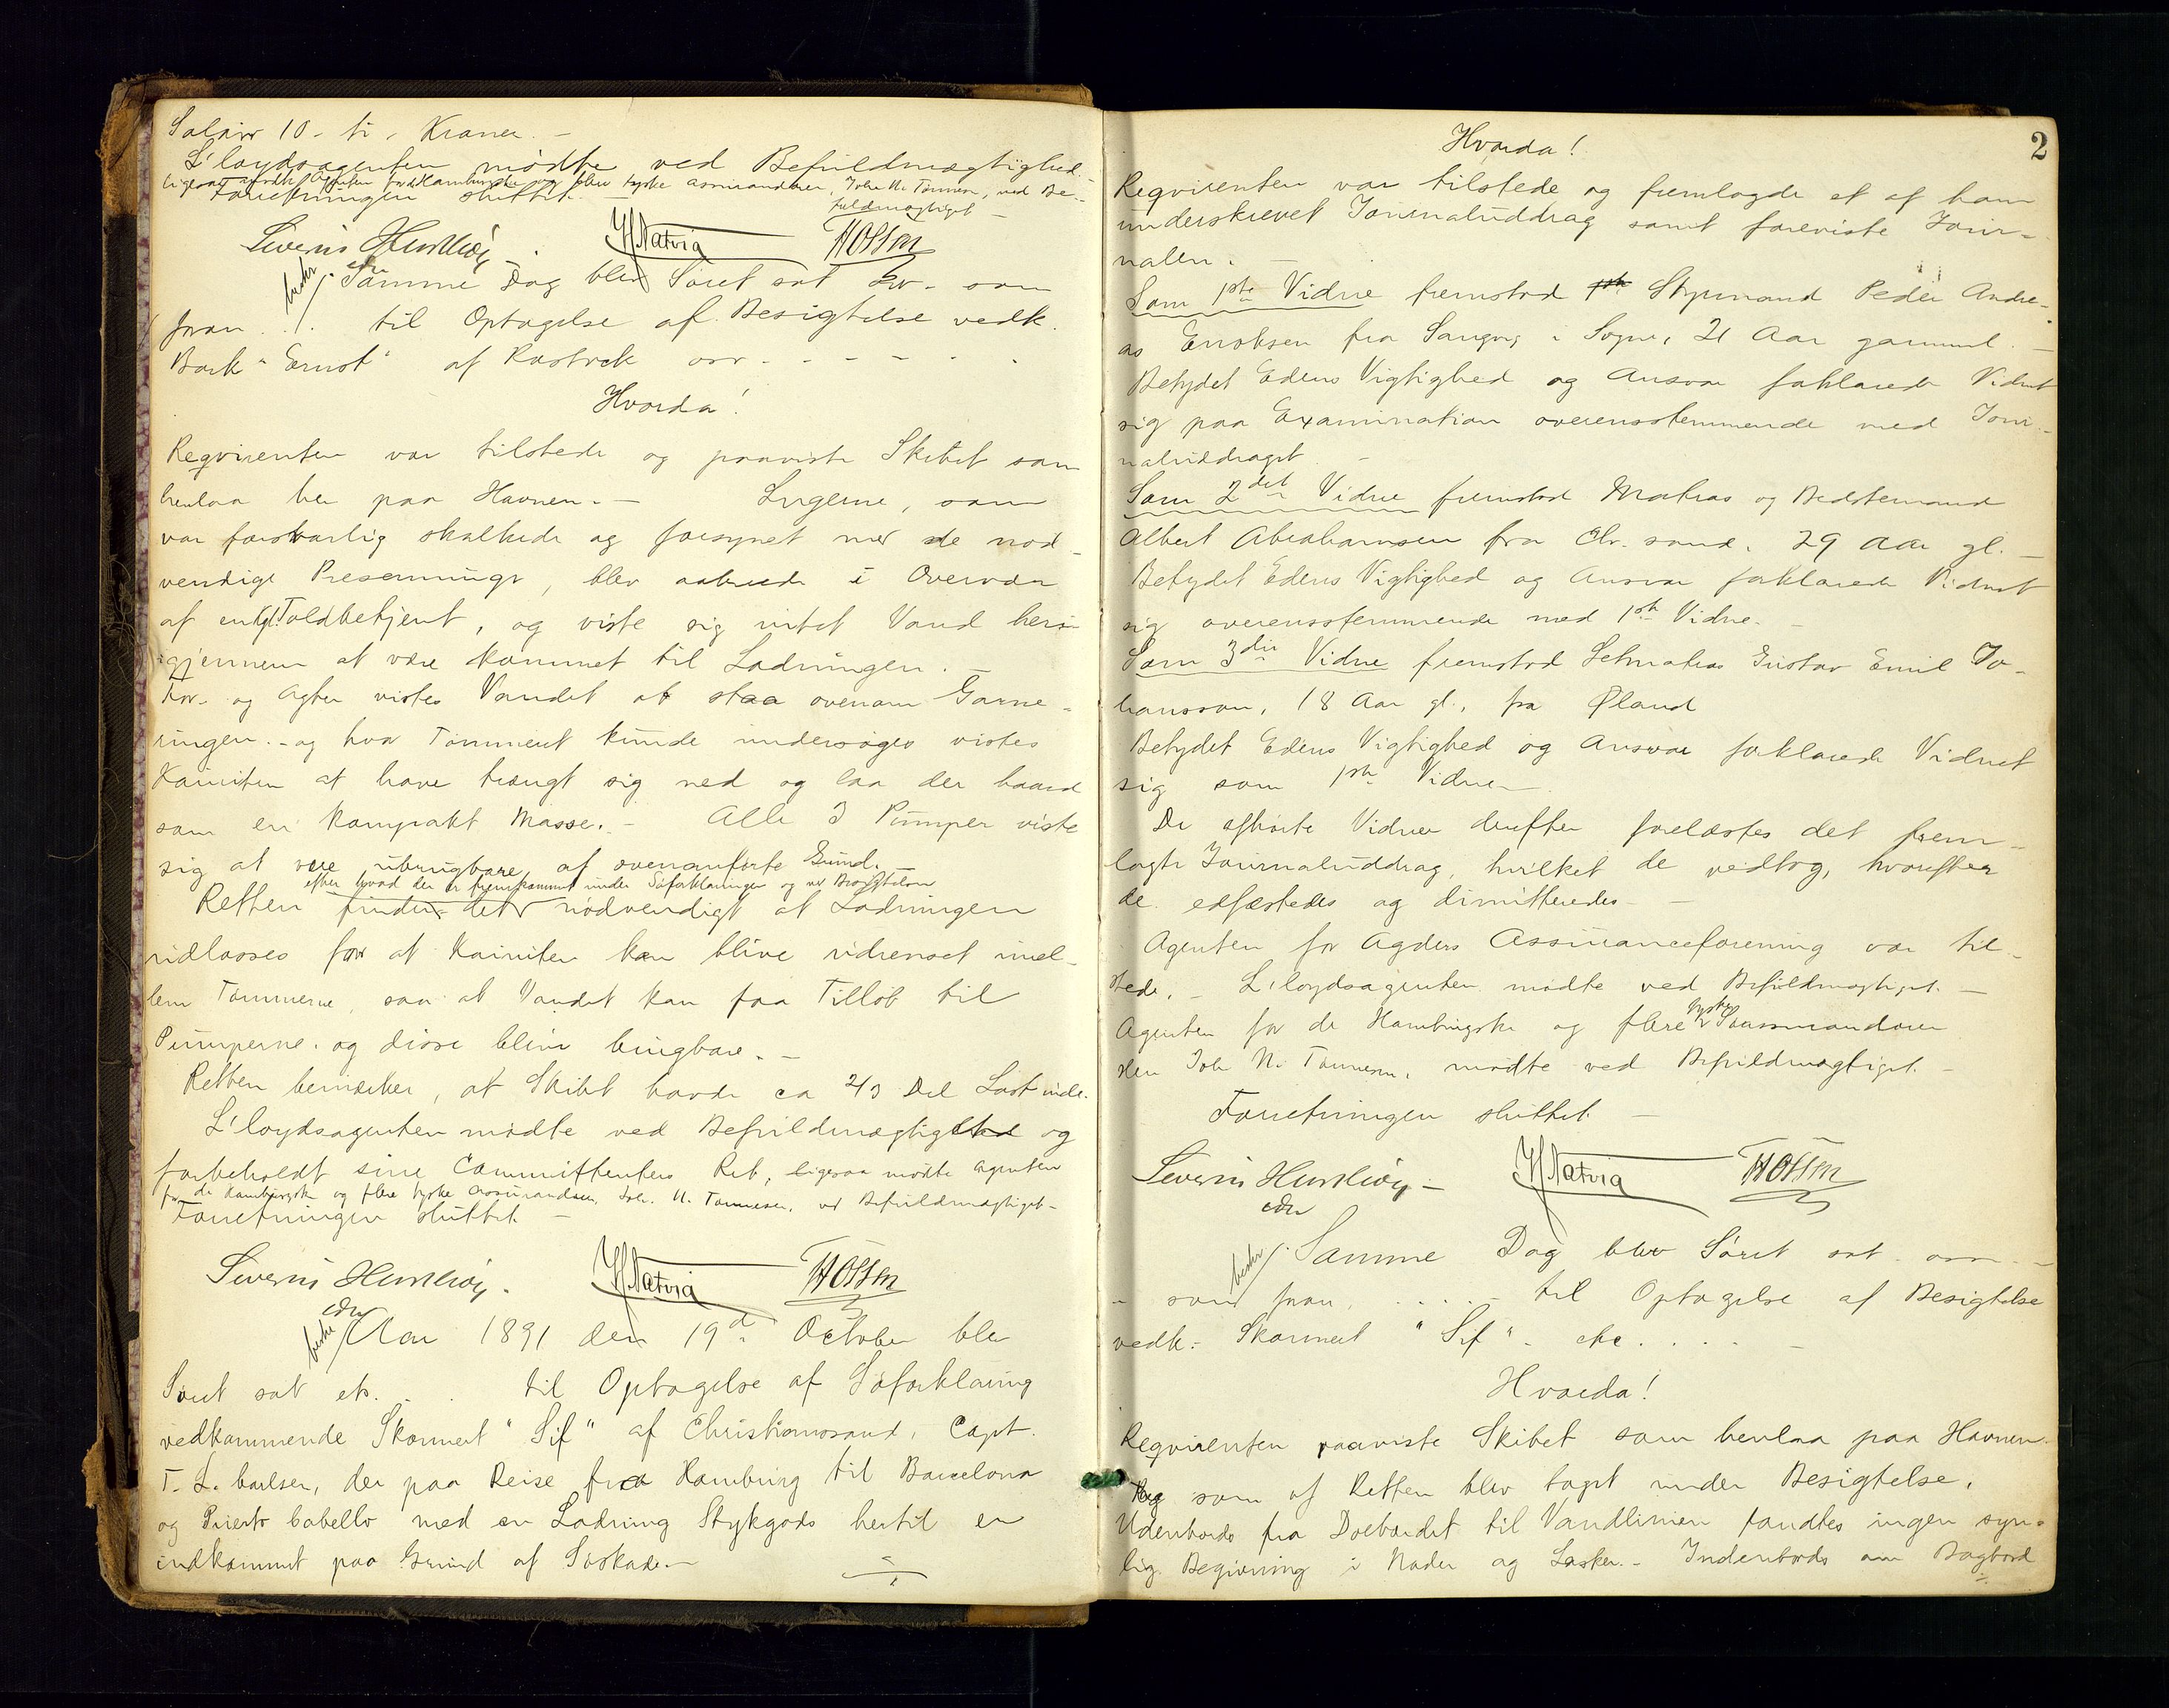 Salair 10 - ti - Kroner. -
L'loydsagenten mødte ved Befuldmægtighed.
ligesaa mødte Agenten for de Hamburgske og flere tyske Assurandører, Joh. N. Tønnesen, ved Be-
fuldmægtiget -
Forretningen sluttet. -
Severin H. Natvig T. H. Olsen
Samme Dag blev Søret sat - som
foran . . . til Optagelse af Besigtelse vedk.
Bark "Ernst" af Rostock osv. - - - -
Hvorda!
Reqvirenten var tilstede og paaviste Skibet som
henlaa her paa Havnen. - Lugerne, som
var forsvarlig skalkede og forsynet med de nød-
vendige Presenninger, blev aabnede i Overvær
af en Toldbetjent, og viste sig intet Vand heri-
gjennem at være kommet til Ladningen. -
For- og Agter vistes Vandet at staa ovenom Garne-
ringen. - og hvor Tømmeret kunde undersøges vistes
Kainiten at have trængt sig ned og laa der haard
som en kompakt Masse. - Alle 3 Pumper viste
sig at være ubrugbare af ovenanførte Grund. -
efter hvad der er fremkommet under Søforklaringen og ved Besigtelsen
Retten finder det nødvendigt at Ladningen
udlosses for at Kainiten kan blive udrenset imel-
lem Tømmerne, saa at Vandet kan faa Tilløb til
Pumperne og disse blive brugbare. -
Retten bemærker, at Skibet havde ca 2/3 Del Last inde.
L'loydsagenten mødte ved Befuldmægtiget og
forbeholdt sine Committenters Ret, ligesaa mødte Agenten
for de Hamburgske og flere tyske Assurandører, Joh. N. Tønnesen, ved Befuldmægtiget -
Forretningen sluttet. -
Severin H. Natvig T. H. Olsen
Aar 1891 den 19d October blev
Søret sat etc. . . til Optagelse af Søforklaring
vedkommende Skonnert "Sif" af Christianssand, Capt.
T. L. Carlsen, der paa Reise fra Hamburg til Barcelona
og Puerto Cabello med en Ladning Stykgods hertil er
indkommet paa Grund af Søskade. -
2
Hvorda!
Reqvirenten var tilstede og fremlagde et af ham
underskrevet Journaluddrag samt foreviste Jour-
nalen. -
Som 1ste Vidne fremstod Styrmand Peder Andre-
as Eriksen fra Langvig i Søgne, 21 Aar gammel. -
Betydet Edens Vigtighed og Ansvar forklarede Vidnet
sig paa Examination overensstemmende med Jour-
naluddraget. -
Som 2det Vidne fremstod Matros og Bedstemand
Albert Abrahamsen fra Chr.sand, 29 Aar gl. -
Betydet Edens Vigtighed og Ansvar forklarede Vidnet
sig overensstemmende med 1ste Vidne. -
Som 3die Vidne fremstod Letmatros Gustav Emil Jo-
hansson, 18 Aar gl., fra Øland
Betydet Edens Vigtighed og Ansvar forklarede Vidnet
sig som 1ste Vidne -
De afhørte Vidner derefter forelæstes det frem-
lagte Journaluddrag, hvilket de vedtog, hvorefter
de edfæstedes og dimitteredes -
Agenten for Agders Assuranceforening var til-
stede. - L'loydsagenten mødte ved Befuldmægtiget. -
Agenten for de Hamburgske og flere tyske Søassurandører
Joh. N. Tønnesen, mødte ved Befuldmægtiget. -
Forretningen sluttet. -
Severin H. Natvig T. H. Olsen
Samme Dag blev Søret sat osv. -
- som foran . . . . . til Optagelse af Besigtelse
vedk. Skonnert "Sif" etc. . . . -
Hvorda!
Reqvirenten paaviste Skibet som henlaa paa Havnen
og som af Retten blev tagt under Besigtelse.
Udenbords fra Dolbordet til Vandlinien fandtes ingen syn-
lig Begivning i Nader og Lasker. - Indenbords om Bagbord